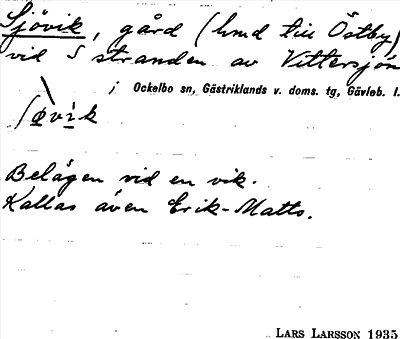 Sjövik, gård (hmd till Östby)
vid S stranden av Vittersjön
i Ockelbo sn, Gästriklands v. doms. tg, Gävleb. l.
Belägen vid en vik.
Kallas även Erik-Matts.
LARS LARSSON 1935